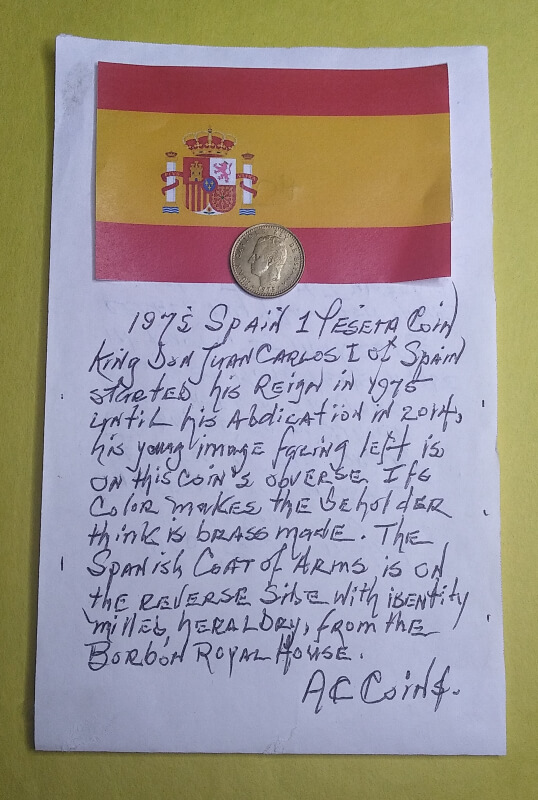 1975 Spain 1 Peseta Coin
King Don Juan Carlos I of Spain
started his Reign in 1975
until his Abdication in 2014,
his young image facing left is
on this coin's obverse. Its
Color makes the beholder
think is brass made. The
Spanish Coat of Arms is on
the reverse side with identity
milled, heraldry, from the
Borbón Royal House.
AC Coins.